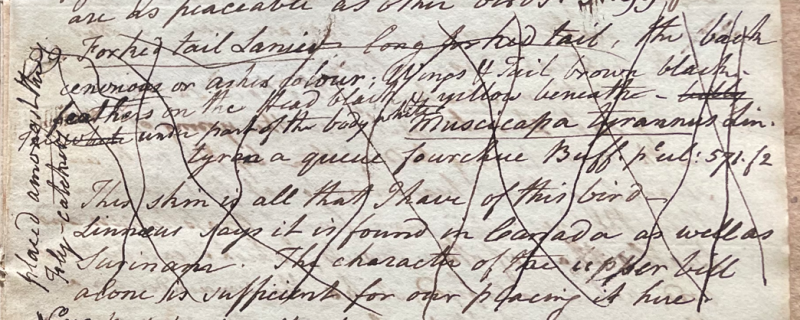 are as peaceable as other birds.
Forked tail Lanies long forked tail, the back
cenerous or ashes Colour; Wings & Tail brown black -
feathers on the Head black & yellow beneath -
under part of the body white Muscicapa tyrannus Lin.
tyran a queue fourchue Buff. pl. enl: 571. f2
This skin is all that I have of this bird -
Linnæus says it is found in Canada as well as
Surinam. The character of the upper bill
alone is sufficient for our placing it here -
placed amongst the
Fly-catchers